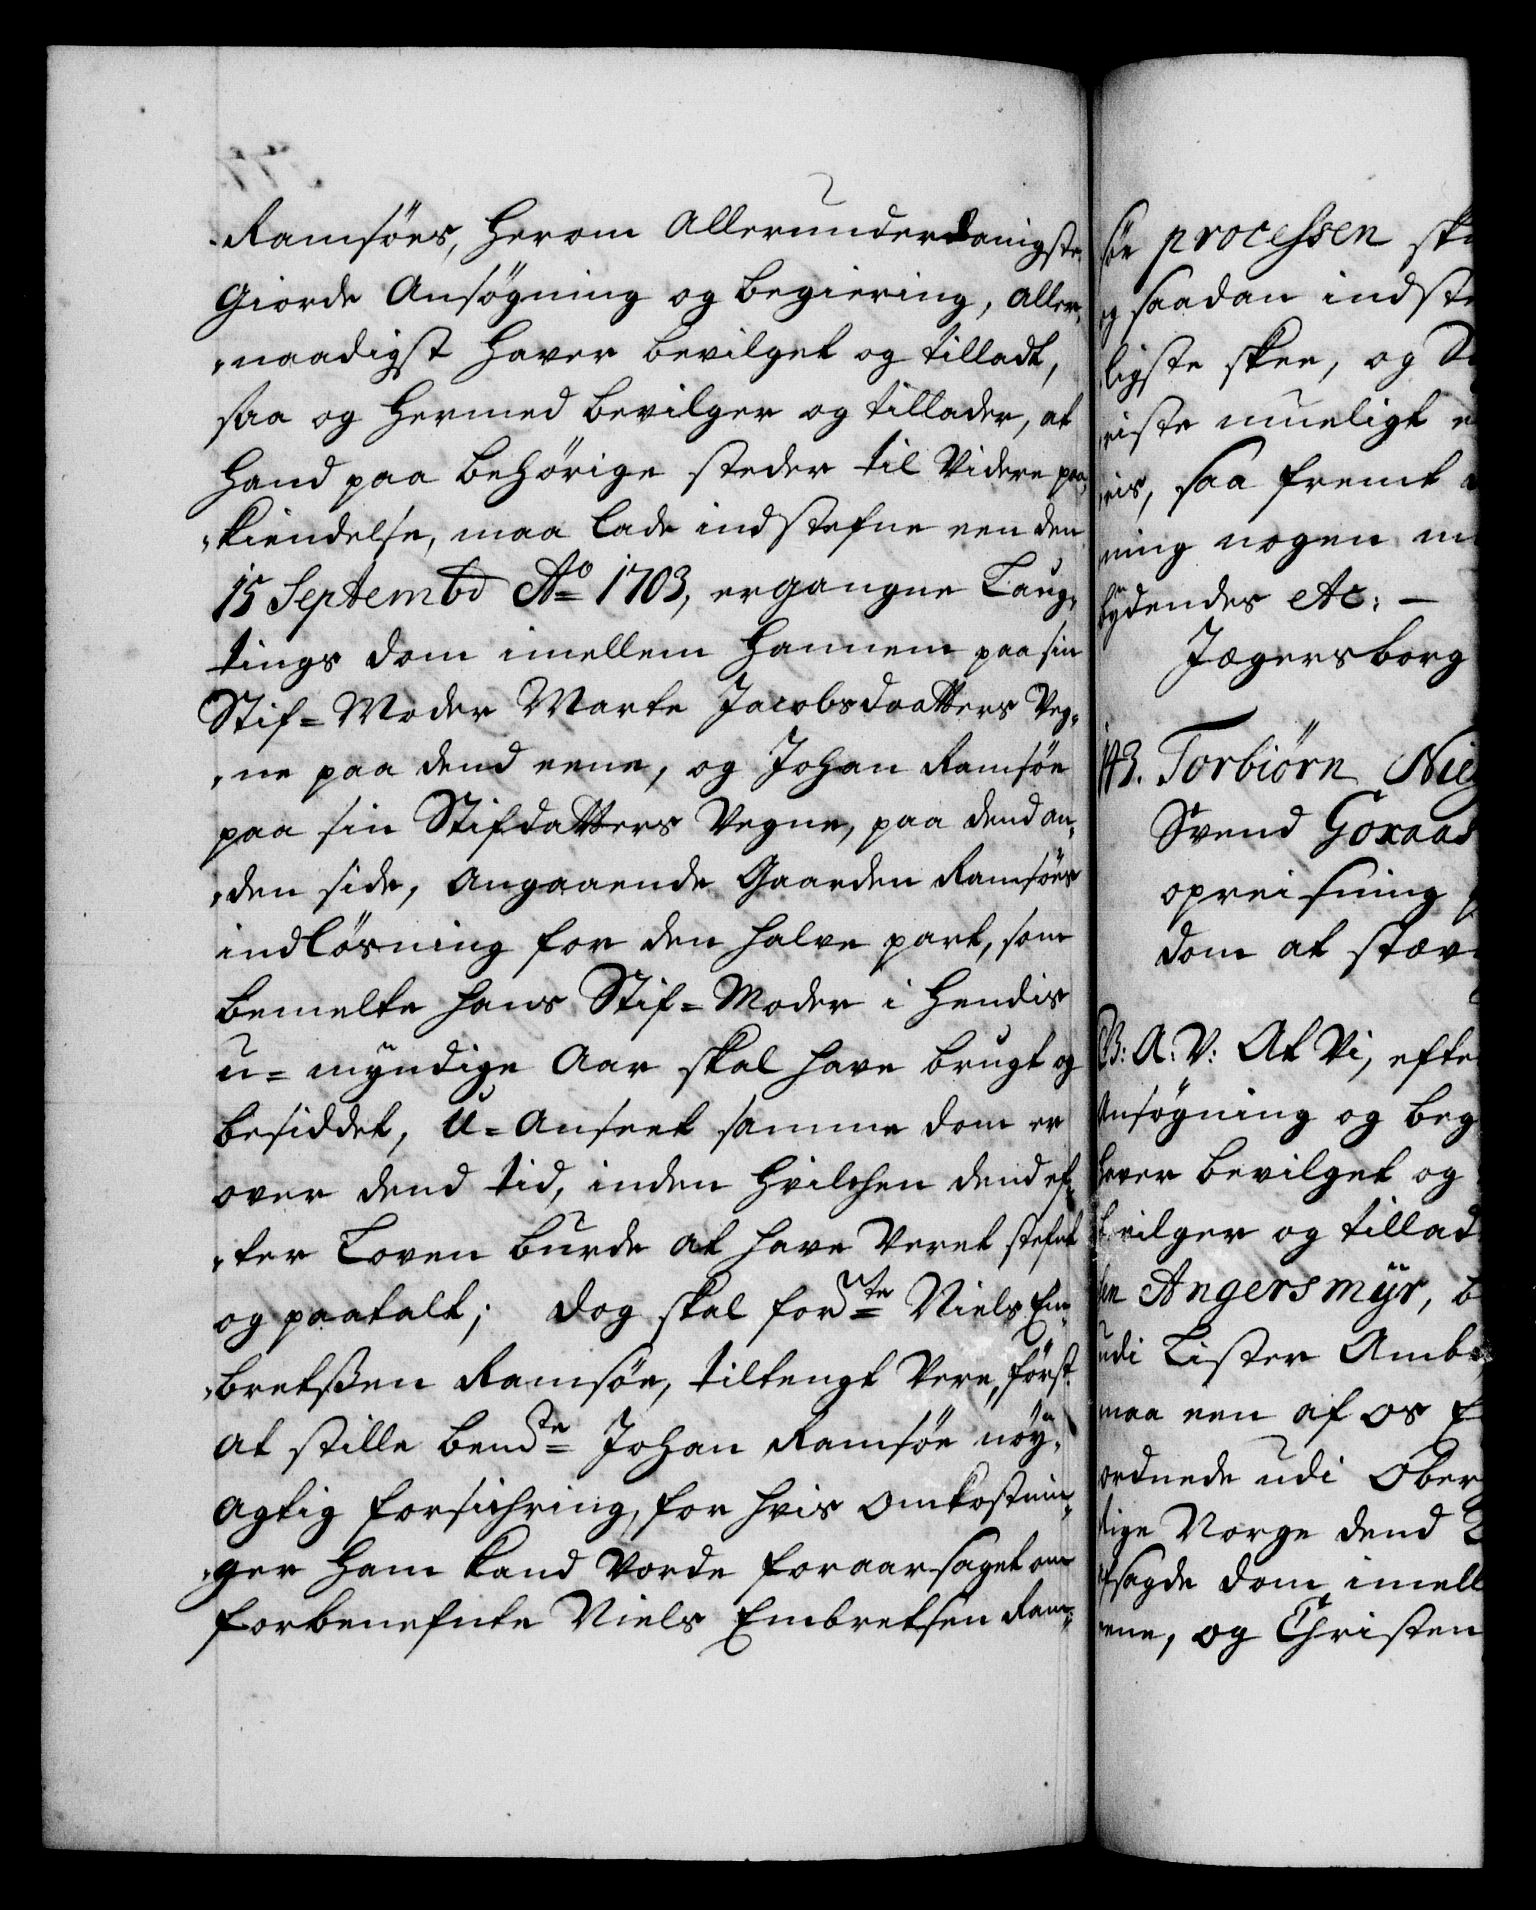 Ramsöes, herom Allerunderdanigste
Giorde Ansögning og begiering, Aller,
,naadigst haver bevilget og tilladt,
saa og hermed bevilger og tillader, at
hand paa behörige steder til Videre paa,
,kiendelse, maa lade indstefne een den
15 Septembr Ao 1703, ergangne Laug,
tings dom imellem hannem paa sin
Stif=Moder Marte Jacobsdaatters Veg,
,ne paa dend eene, og Johan Ramsöe
paa sin Stifdatters Vegne, paa dend an,
,den side, Angaaende Gaarden Ramsöes
indlösning for den halve part, som
bemelte hans Stif=Moder i hendis
u=myndige Aar skal have brugt og
besiddet, U=Anseet samme dom er
over dend tid, inden hvilchen dend ef,
,ter Loven burde at have Veret stefnt
og paatalt; dog skal forte Niels Em,
,bretßen Ramsöe, tiltengt Vere, först
at stille bemte Johan Ramsöe nöy,
agtig forsichring, for hvis omkostnin,
,ger ham kand vorde foraarsaget om
forbenefnte Niels Embretsen Ram,
söe processen
og saadan
ligste skee, og
muligt
saa fremt
ning nogen
bydendes etc: —
Jægersborg
Torbiörn
Svend Goraas
opreisning
dom at
B: A: V: At Vi,
Ansögning og
haver bevilget og
bevilger og
Angersmÿr,
udi Lister
maa een af os
udi
Norge dend
dom
eene, og Christen